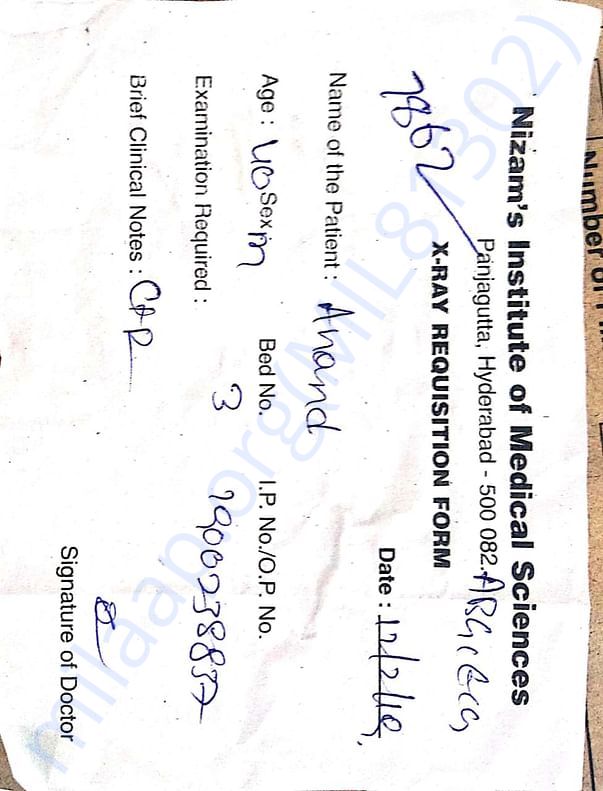 Number of
Nizam's Institute of Medical Sciences
Panjagutta, Hyderabad - 500 082.
7862
X-RAY REQUISITION FORM
Date : 12/2/19
Name of the Patient : Anand
Age : 40 Sex : m Bed No. I.P. No./O.P. No.
3
Examination Required :
Brief Clinical Notes :
Signature of Doctor
milaap.org(MIL81302)